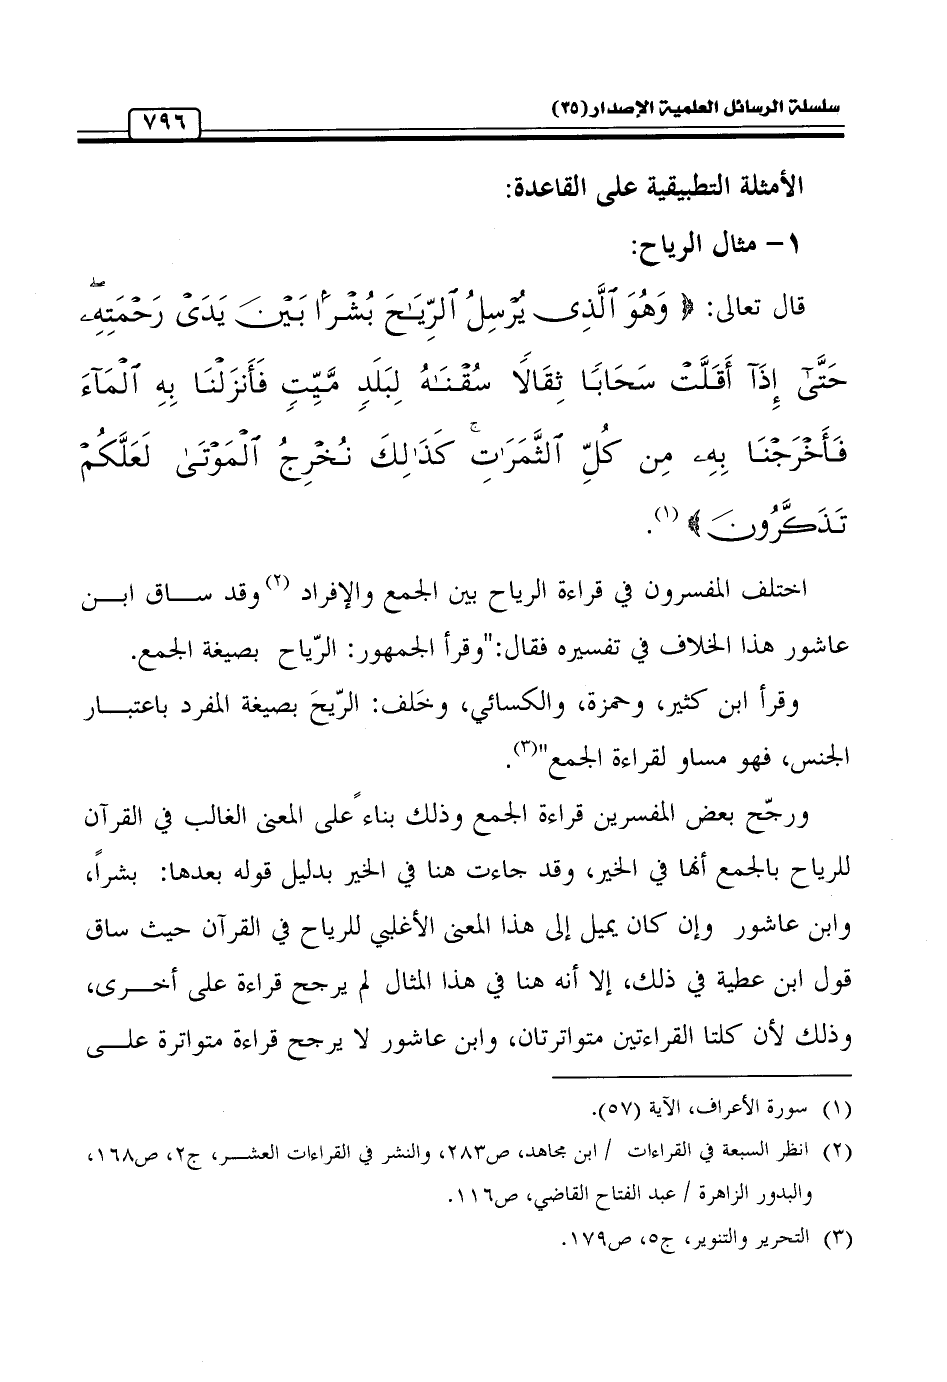 سلسلة الرسائل العلمية الإصدار (٣٥)
٧٩٦
الأمثلة التطبيقية على القاعدة:
١- مثال الرياح:
قال تعالى: ﴿ وَهُوَ ٱلَّذِى يُرْسِلُ ٱلرِّيَـٰحَ بُشْرًۢا بَيْنَ يَدَىْ رَحْمَتِهِۦ ۖ
حَتَّىٰٓ إِذَآ أَقَلَّتْ سَحَابًا ثِقَالًا سُقْنَـٰهُ لِبَلَدٍ مَّيِّتٍ فَأَنزَلْنَا بِهِ ٱلْمَآءَ
فَأَخْرَجْنَا بِهِۦ مِن كُلِّ ٱلثَّمَرَٰتِ ۚ كَذَٰلِكَ نُخْرِجُ ٱلْمَوْتَىٰ لَعَلَّكُمْ
تَذَكَّرُونَ ﴾ (١).
اختلف المفسرون في قراءة الرياح بين الجمع والإفراد (٢) وقد ساق ابن
عاشور هذا الخلاف في تفسيره فقال:"وقرأ الجمهور: الرّياح بصيغة الجمع.
وقرأ ابن كثير، وحمزة، والكسائي، وخَلف: الرّيحَ بصيغة المفرد باعتبار
الجنس، فهو مساو لقراءة الجمع"(٣).
ورجّح بعض المفسرين قراءة الجمع وذلك بناءً على المعنى الغالب في القرآن
للرياح بالجمع أنها في الخير، وقد جاءت هنا في الخير بدليل قوله بعدها: بشراً،
وابن عاشور وإن كان يميل إلى هذا المعنى الأغلبي للرياح في القرآن حيث ساق
قول ابن عطية في ذلك، إلا أنه هنا في هذا المثال لم يرجح قراءة على أخرى،
وذلك لأن كلتا القراءتين متواترتان، وابن عاشور لا يرجح قراءة متواترة على
(١) سورة الأعراف، الآية (٥٧).
(٢) انظر السبعة في القراءات / ابن مجاهد، ص٢٨٣، والنشر في القراءات العشر، ج٢، ص١٦٨،
والبدور الزاهرة / عبد الفتاح القاضي، ص١١٦.
(٣) التحرير والتنوير، ج٥، ص١٧٩.